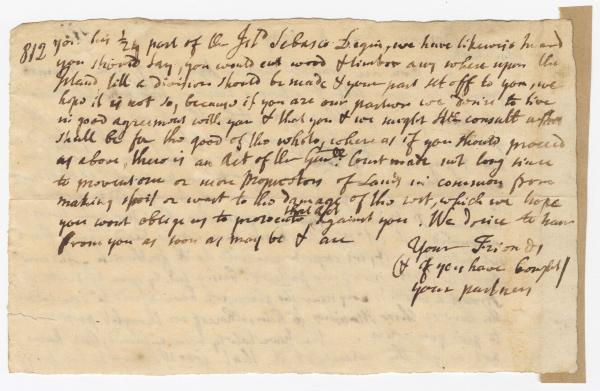 812
you his 1/24 part of the Isl'd Sebasco Degin, we have likewise heard
you should say, you would cut wood & timber any where upon the
Island, till a division should be made & your part set off to you, we
hope it is not so, because if you are our partner we desire to live
in good agreement with you & that you & we might consult what
shall be for the good of the whole, where as if you should proceed
as above, there is an Act of the Gen'll Court made not long since
to prevent one or more Proprietors of Lands in common from
making spoil or wast to the damage of the rest, which we hope
you wont oblige us to prosecute that act against you. We desire to hear
from you as soon as may be & are
Your Friends
(& if you have bought)
your partners